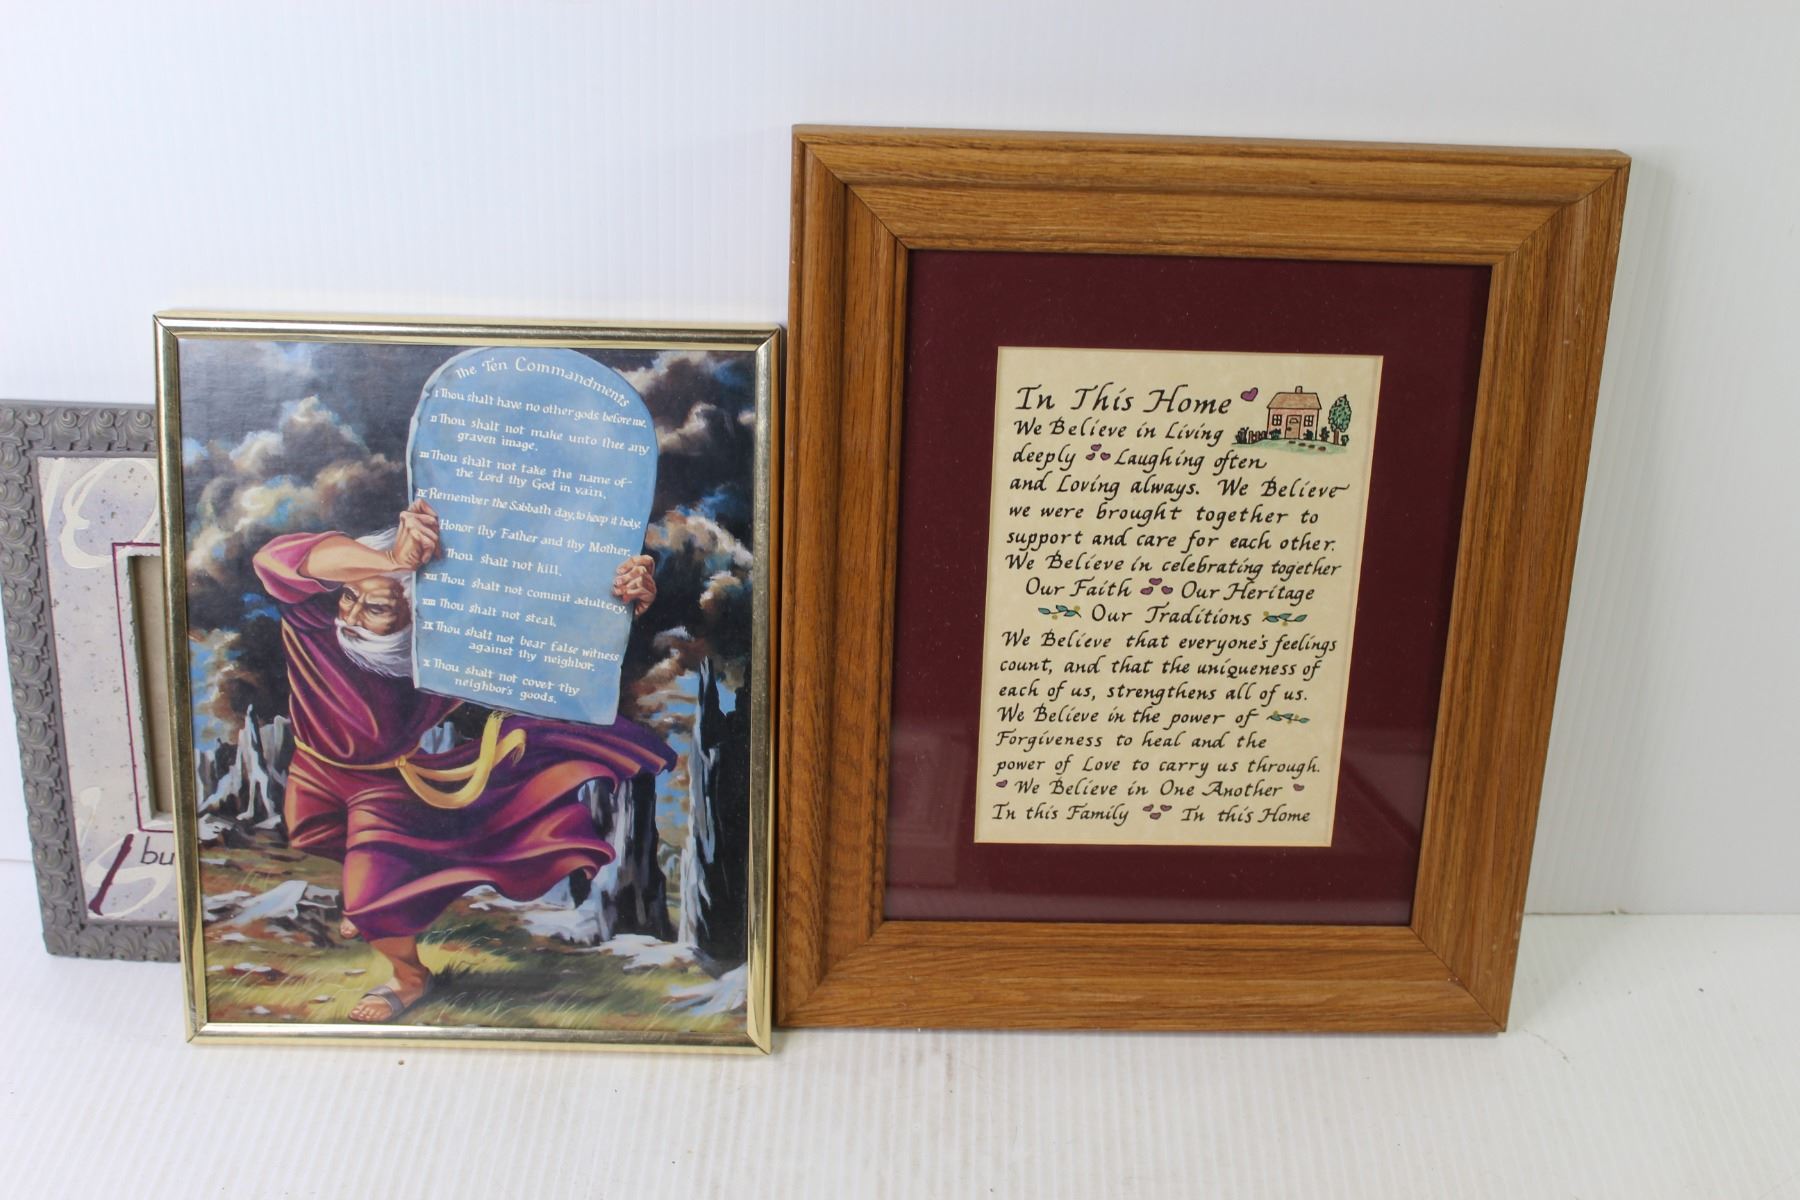 bu
The Ten Commandments
I Thou shalt have no other gods before me.
II Thou shalt not make unto thee any
graven image.
III Thou shalt not take the name of
the Lord thy God in vain.
IV Remember the Sabbath day, to keep it holy.
Honor thy Father and thy Mother.
Thou shalt not kill.
VII Thou shalt not commit adultery.
VIII Thou shalt not steal.
IX Thou shalt not bear false witness
against thy neighbor.
X Thou shalt not covet thy
neighbor's goods.
In This Home
We Believe in Living
deeply Laughing often
and Loving always. We Believe
we were brought together to
support and care for each other.
We Believe in celebrating together
Our Faith Our Heritage
Our Traditions
We Believe that everyone's feelings
count, and that the uniqueness of
each of us, strengthens all of us.
We Believe in the power of
Forgiveness to heal and the
power of Love to carry us through.
We Believe in One Another
In this Family In this Home